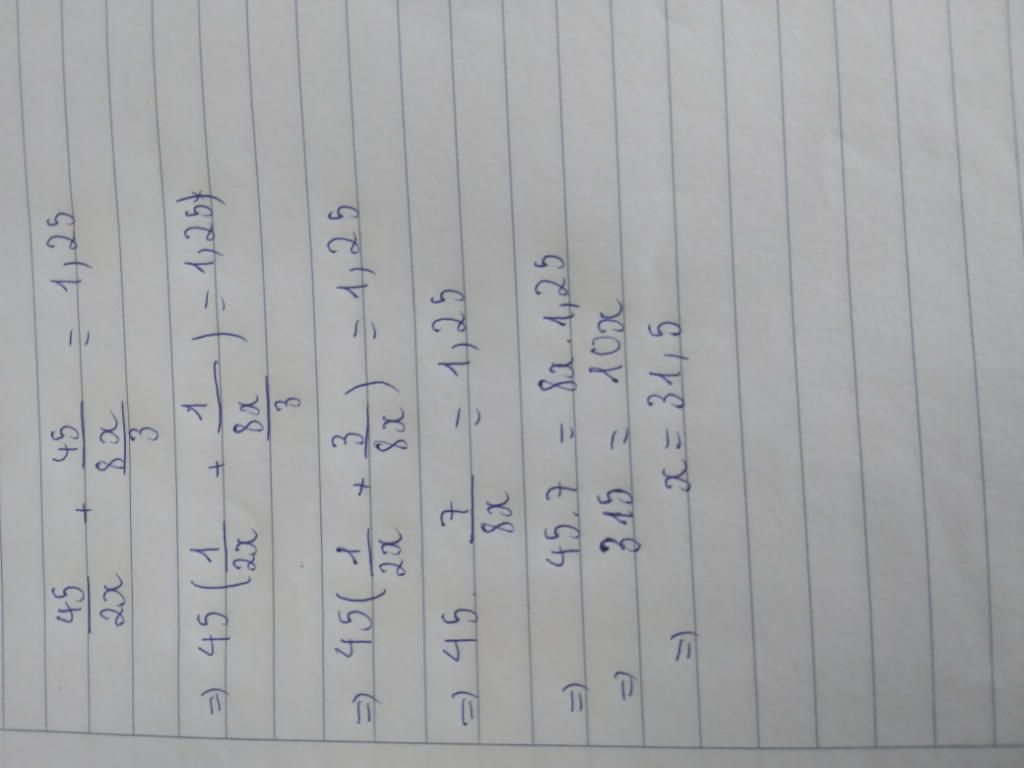 45/2x + 45/(8x/3) = 1,25
=) 45 (1/2x + 1/(8x/3)) = 1,25)*
=) 45 (1/2x + 3/8x) = 1,25
=) 45 . 7/8x = 1,25
=) 45.7 = 8x.1,25
=) 315 = 10x
=) x = 31,5